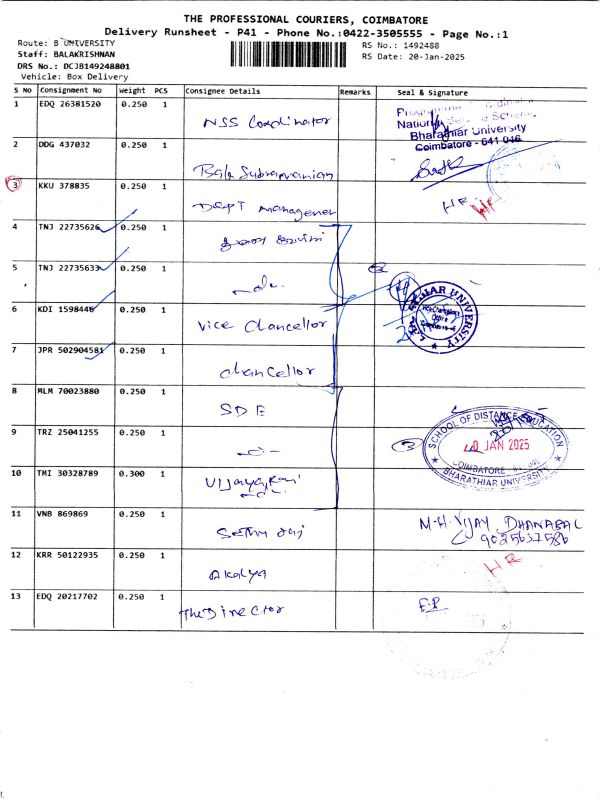 THE PROFESSIONAL COURIERS, COIMBATORE
Delivery Runsheet - P41 - Phone No.:0422-3505555 - Page No.:1
Route: B UNIVERSITY
RS No.: 1492488
Staff: BALAKRISHNAN
RS Date: 20-Jan-2025
DRS No.: DCJB149248801
Vehicle: Box Delivery
S No Consignment No Weight PCS Consignee Details Remarks Seal & Signature
1 EDQ 26381520 0.250 1 NSS Coordinator
National Scheme
Bharathiar University
Coimbatore - 641 046
2 DDG 437032 0.250 1
3 KKU 378835 0.250 1 Dept Manager HR HR
4 TNJ 22735626 0.250 1
5 TNJ 22735633 0.250 1 -do-
6 KDI 1598446 0.250 1 Vice Chancellor
7 JPR 502904581 0.250 1 Chancellor
8 MLM 70023880 0.250 1 SDE
9 TRZ 25041255 0.250 1 -do-
SCHOOL OF DISTANCE EDUCATION
JAN 2025
COIMBATORE
BHARATHIAR UNIVERSITY
10 TMI 30328789 0.300 1
11 VNB 869869 0.250 1
M.H. VIJAY DHANABAL
9025637586
12 KRR 50122935 0.250 1 Akalya HR
13 EDQ 20217702 0.250 1 The Director